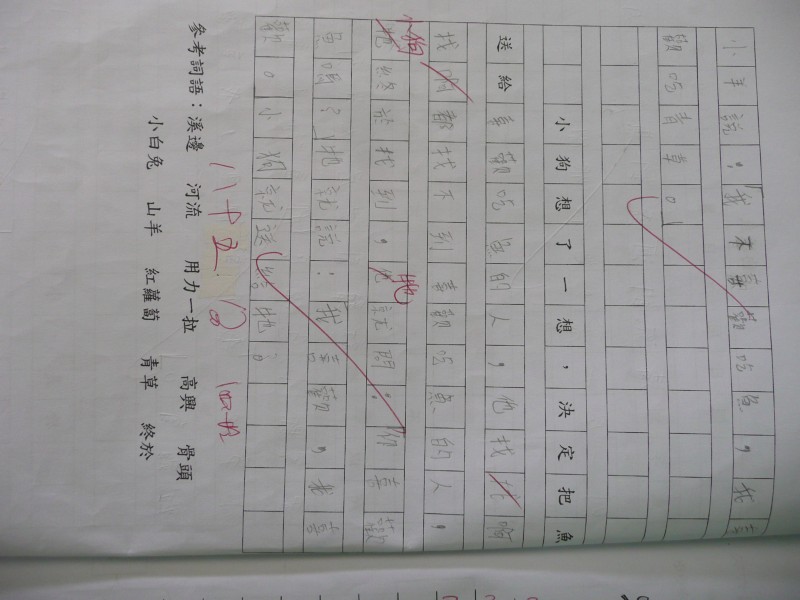 小羊說：我本喜歡吃魚，我喜
歡吃青草。
小狗想了一想，決定把魚
送給喜歡吃魚的人，他找找啊
找啊都找不到喜歡吃魚的人，
小狗
牠終於找到，他就問：你喜歡
牠
魚嗎？牠就說：我喜歡，我喜
歡。小狗就送給牠。
八十五
參考詞語：溪邊 河流 用力一拉 高興 骨頭
小白兔 山羊 紅蘿蔔 青草 終於